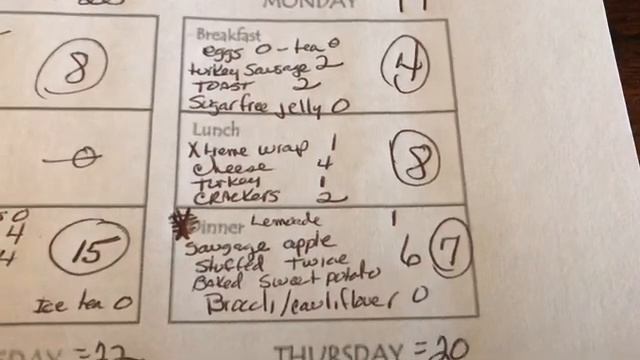 MONDAY
Breakfast
eggs 0 - tea 0
turkey Sausage 2
TOAST 2
Sugar free jelly 0
4
Lunch
Xtreme wrap 1
Cheese 4
Turkey 1
CRACKERS 2
8
Dinner Lemonade 1
Sausage apple
Stuffed Twice
Baked Sweet potato
6 7
Brocoli/cauliflower 0
8
0
0
4
4
15
Ice tea 0
DAY =22
THURSDAY =20